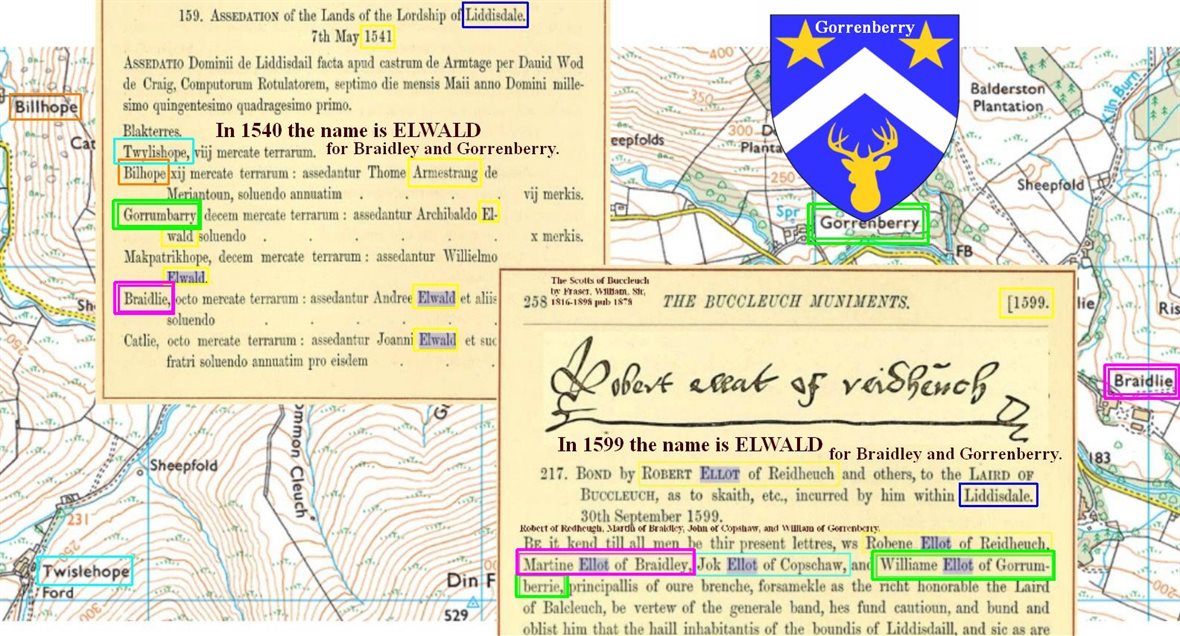 159. ASSEDATION of the Lands of the Lordship of Liddisdale.
7th May 1541
ASSEDATIO Dominii de Liddisdail facta apud castrum de Armtage per Dauid Wod
de Craig, Computorum Rotulatorem, septimo die mensis Maii anno Domini mille-
simo quingentesimo quadragesimo primo.
Blakterres.
In 1540 the name is ELWALD
for Braidley and Gorrenberry.
Twylishope, viij mercate terrarum.
Bilhope xij mercate terrarum : assedantur Thome Armestrang de
Meriantoun, soluendo annuatim . . . . vij merkis.
Gorrumbarry decem mercate terrarum : assedantur Archibaldo El-
wald soluendo . . . . . . x merkis.
Makpatrikhope, decem mercate terrarum : assedantur Willielmo
Elwald.
Braidlie, octo mercate terrarum : assedantur Andree Elwald et aliis
soluendo . . . . . .
Catlie, octo mercate terrarum : assedantur Joanni Elwald et suo
fratri soluendo annuatim pro eisdem . . . .
Gorrenberry
Billhope
Cat
eepfolds
350
400
300
250
Planta
Balderston
Plantation
Kiln Burn
Sheepfold
Spr
Gorrenberry
FB
lie
Ris
Braidlie
183
She
G
ommon Cleuch
Sheepfold
231
Twislehope
Ford
Din F
529
The Scotts of Buccleuch
by Fraser, William, Sir,
1816-1898 pub 1878
258 THE BUCCLEUCH MUNIMENTS. [1599.
Robert ellat of reidheuch
In 1599 the name is ELWALD
for Braidley and Gorrenberry.
217. BOND by ROBERT ELLOT of Reidheuch and others, to the LAIRD OF
BUCCLEUCH, as to skaith, etc., incurred by him within Liddisdale.
30th September 1599.
Robert of Redheugh, Martin of Braidley, John of Copshaw, and William of Gorrenberry.
BE it kend till all men be thir present lettres, ws Robene Ellot of Reidheuch,
Martine Ellot of Braidley, Jok Ellot of Copschaw, and Williame Ellot of Gorrum-
berrie, principallis of oure brenche, forsamekle as the richt honorable the Laird
of Balcleuch, be vertew of the generale band, hes fund cautioun, and bund and
oblist him that the haill inhabitantis of the boundis of Liddisdaill, and sic as are